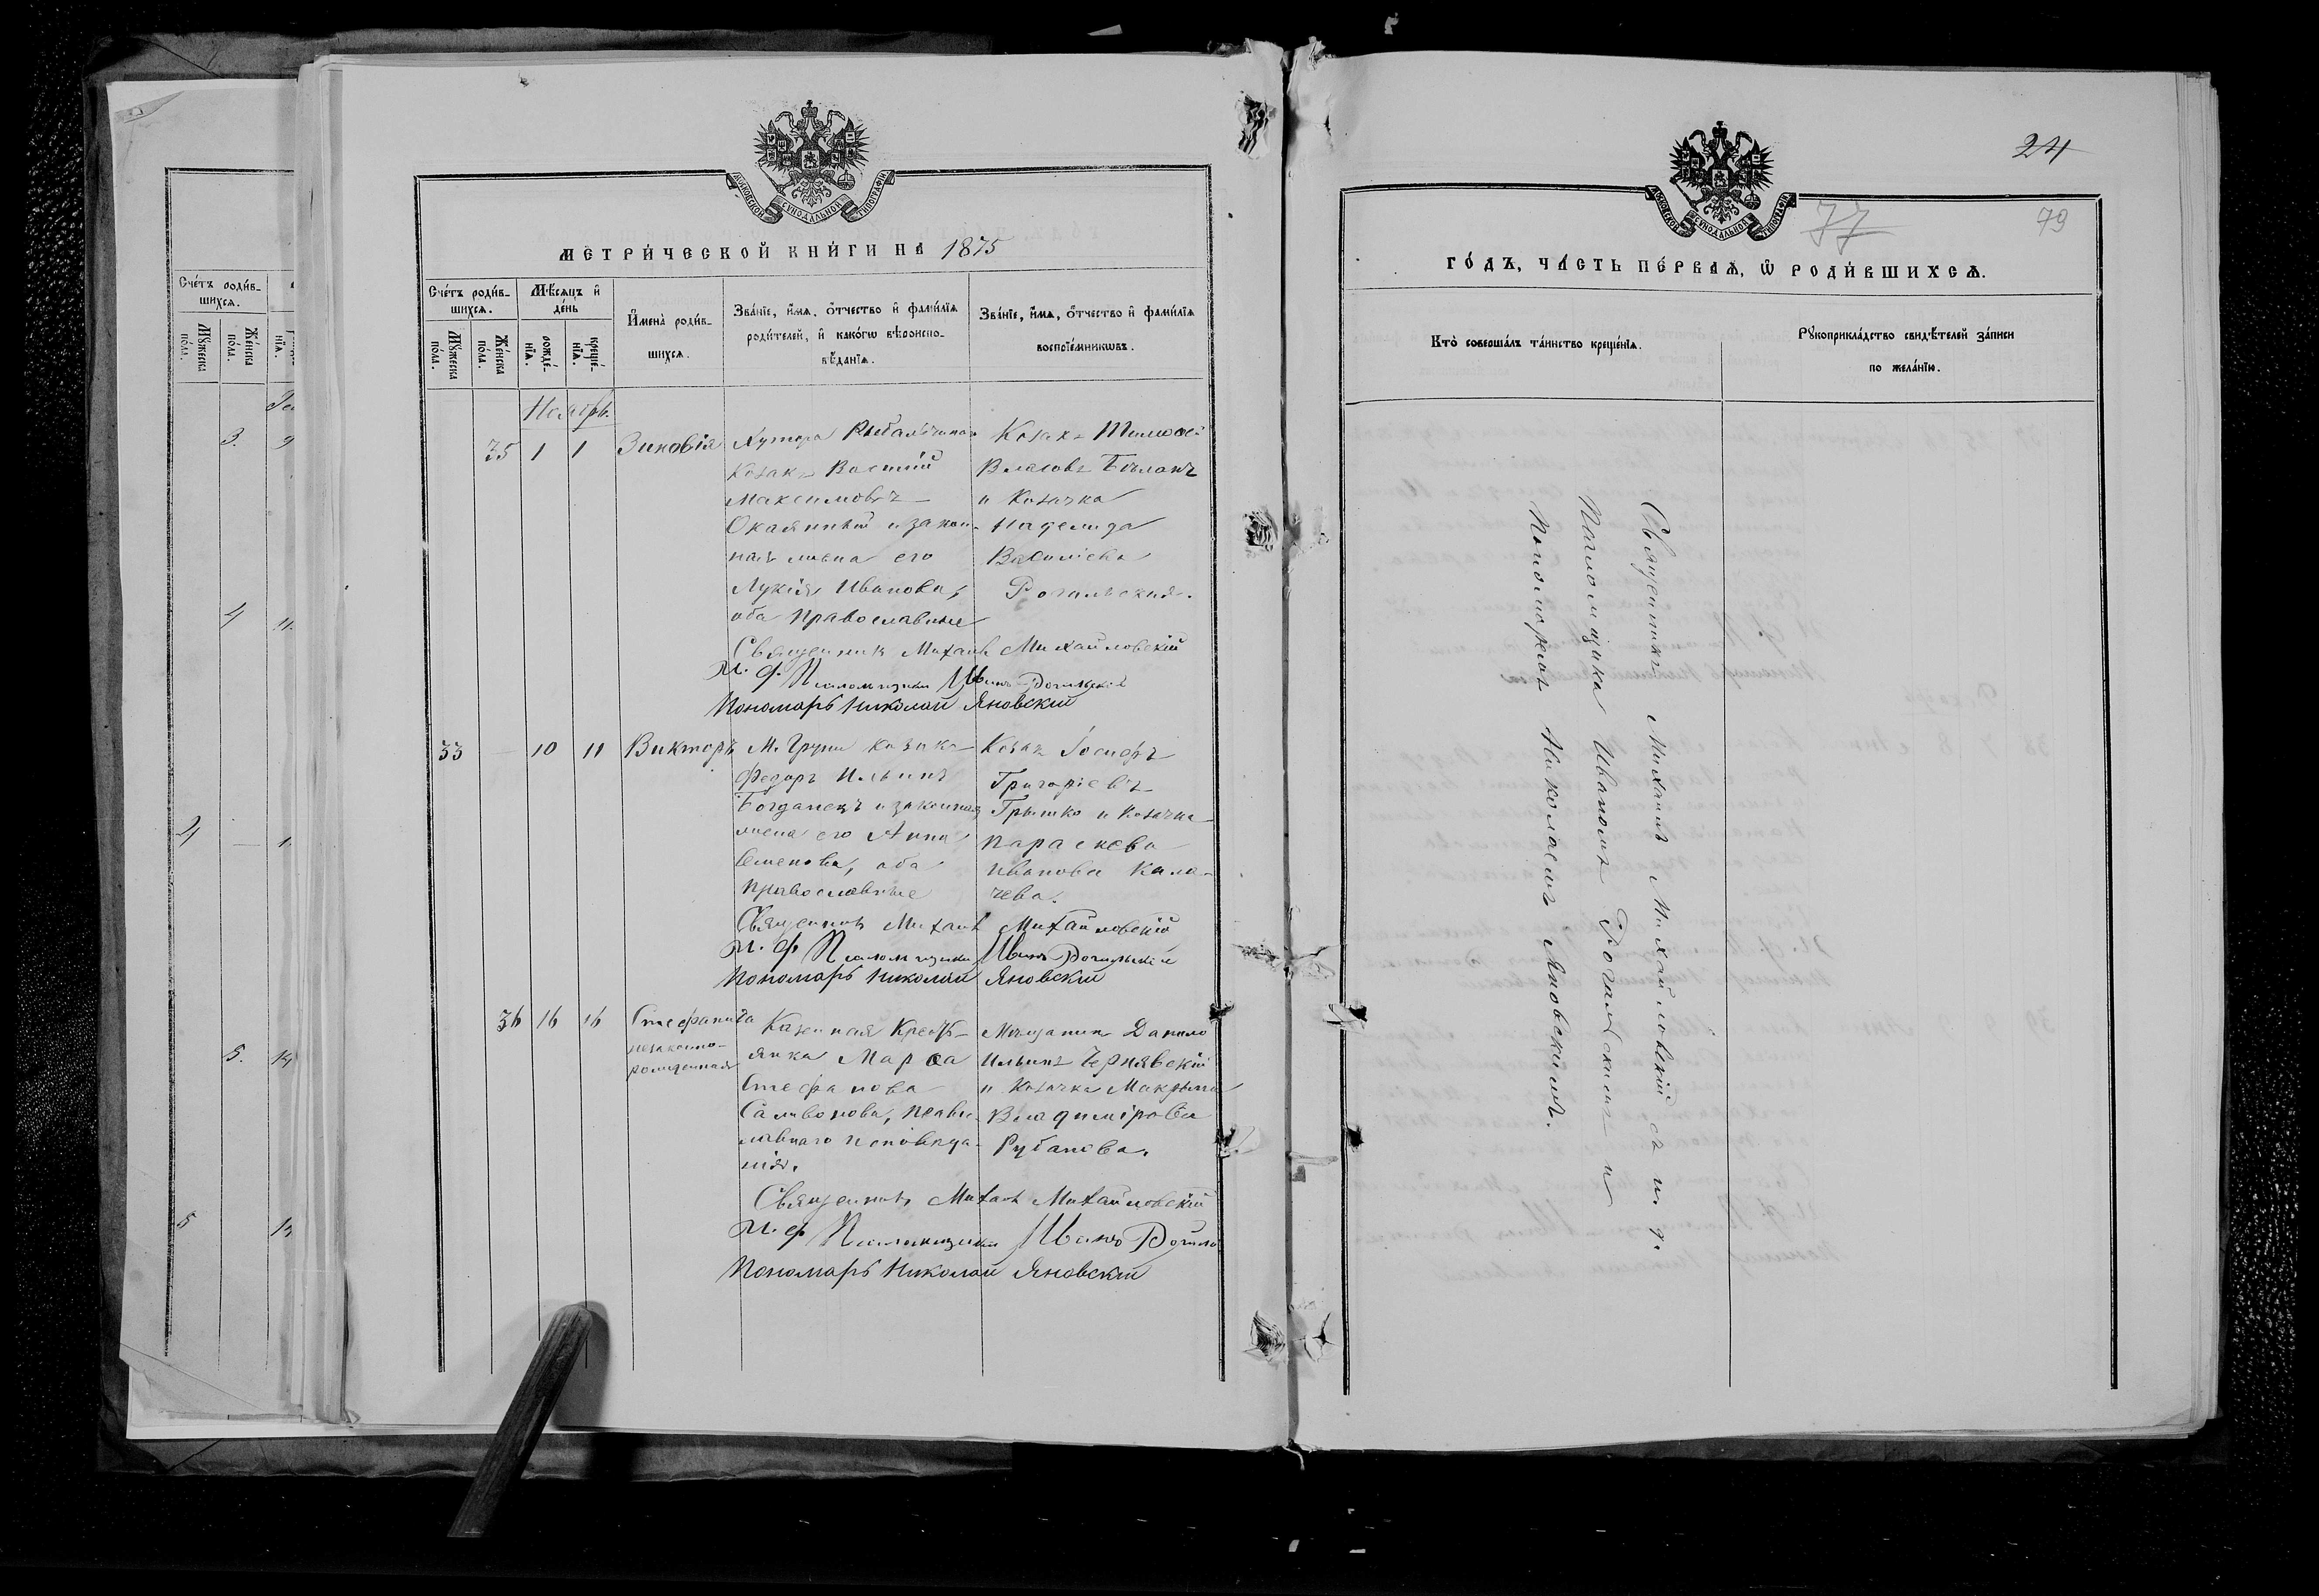 МОСКОВСКОЙ СѴНОДАЛЬНОЙ ТИПОГРАФІИ
МЕТРИ́ЧЕСКОЙ КНИ́ГИ НА 1875
Сче́тъ роди́в-
шихсѧ.
Мꙋ́жеска
по́ла.
Же́нска
по́ла.
Мѣ́сѧцъ и҆
де́нь
рожде́-
нїѧ.
креще́-
нїѧ.
И҆мена̀ роди́в-
шихсѧ.
Зва́нїе, и҆́мѧ, ѻ҆́тчество и҆ фами́лїѧ
роди́телей, и҆ како́гѡ вѣроиспо-
вѣ́данїѧ.
Зва́нїе, и҆́мѧ, ѻ҆́тчество и҆ фами́лїѧ
воспрїе́мникѡвъ.
Ноябрь.
35 1 1 Зиновія
Хутора
Козакъ Василій
Максимовъ
Окаянный и закон-
ная жена его
Лукія Иванова,
оба православные
Козакъ Тимоѳей
Власовъ Бѣланъ
и Козачка
Надежда
Василіева
Рогальская.
Священникъ Михаилъ Михайловскій
И. д. Псаломщика Иванъ Рогальскій
Пономарь Николай Яновскій
33 — 10 11 Викторъ
М. Груни козакъ
Федоръ Ильинъ
Богданецъ и законная
жена его Анна
Семенова, оба
православные
Козакъ Іосифъ
Григоріевъ
Грышко и Козачка
Параскева
Иванова Кала-
чева.
Священникъ Михаилъ Михайловскій
И. д. Псаломщика Иванъ Рогальскій
Пономарь Николай Яновскій
36 16 16 Стефанида
незаконно-
рожденная
Казенная Кресть-
янка Марѳа
Стефанова
Саливонова, правос-
лавнаго исповѣда-
нія.
Мѣщанин Данило
Ильинъ Чернявскій
и Козачка Макрина
Владимірова
Рубанова.
Священникъ Михаилъ Михайловскій
И. д. Псаломщика Иванъ
Пономарь Николай Яновскій
24
77
79
МОСКОВСКОЙ СѴНОДАЛЬНОЙ ТИПОГРАФІИ
ГО́ДЪ, ЧА́СТЬ ПЕ́РВАѦ, Ѡ҆ РОДИ́ВШИХСѦ.
Кто̀ соверша́лъ та́инство креще́нїѧ.
Рꙋкоприкла́дство свидѣ́телей за́писи
по жела́нїю.
Священникъ Михаилъ Михайловскій съ и. д.
Псаломщика Иваномъ Рогальскимъ и
Пономаремъ Николаемъ Яновскимъ.
Сче́тъ роди́в-
шихсѧ.
Мꙋ́жеска
по́ла.
Же́нска
по́ла.
3. 9
4 11.
4 — 1.
5. 14
5